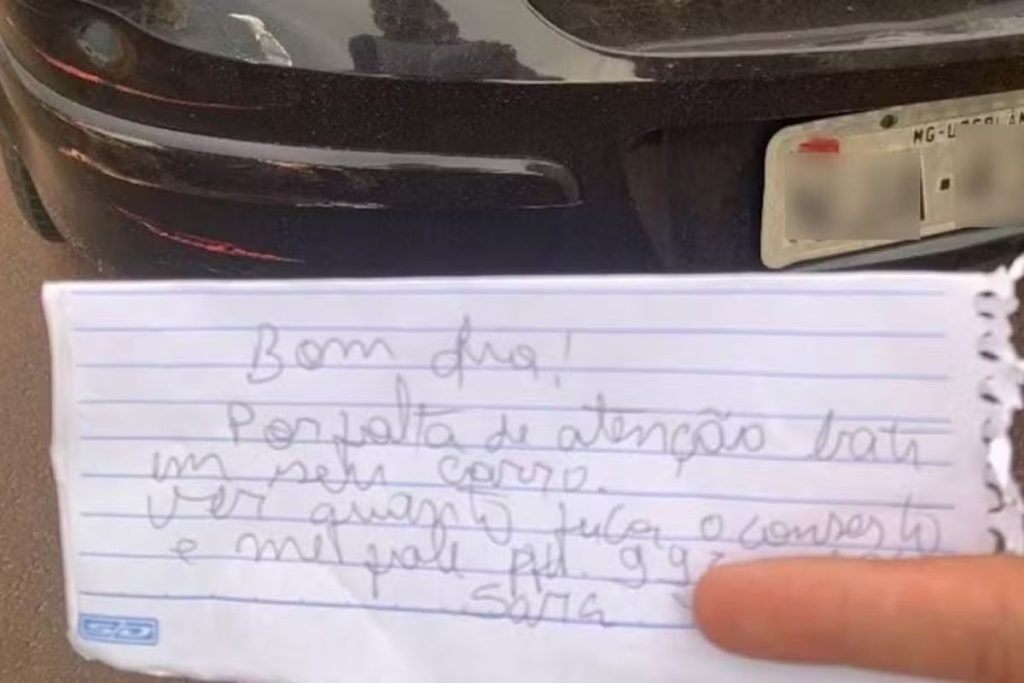 MG-U
Bom dia!
Por falta de atenção bati
em seu carro.
ver quanto fica o conserto
e me fale pfv. 99
Sara